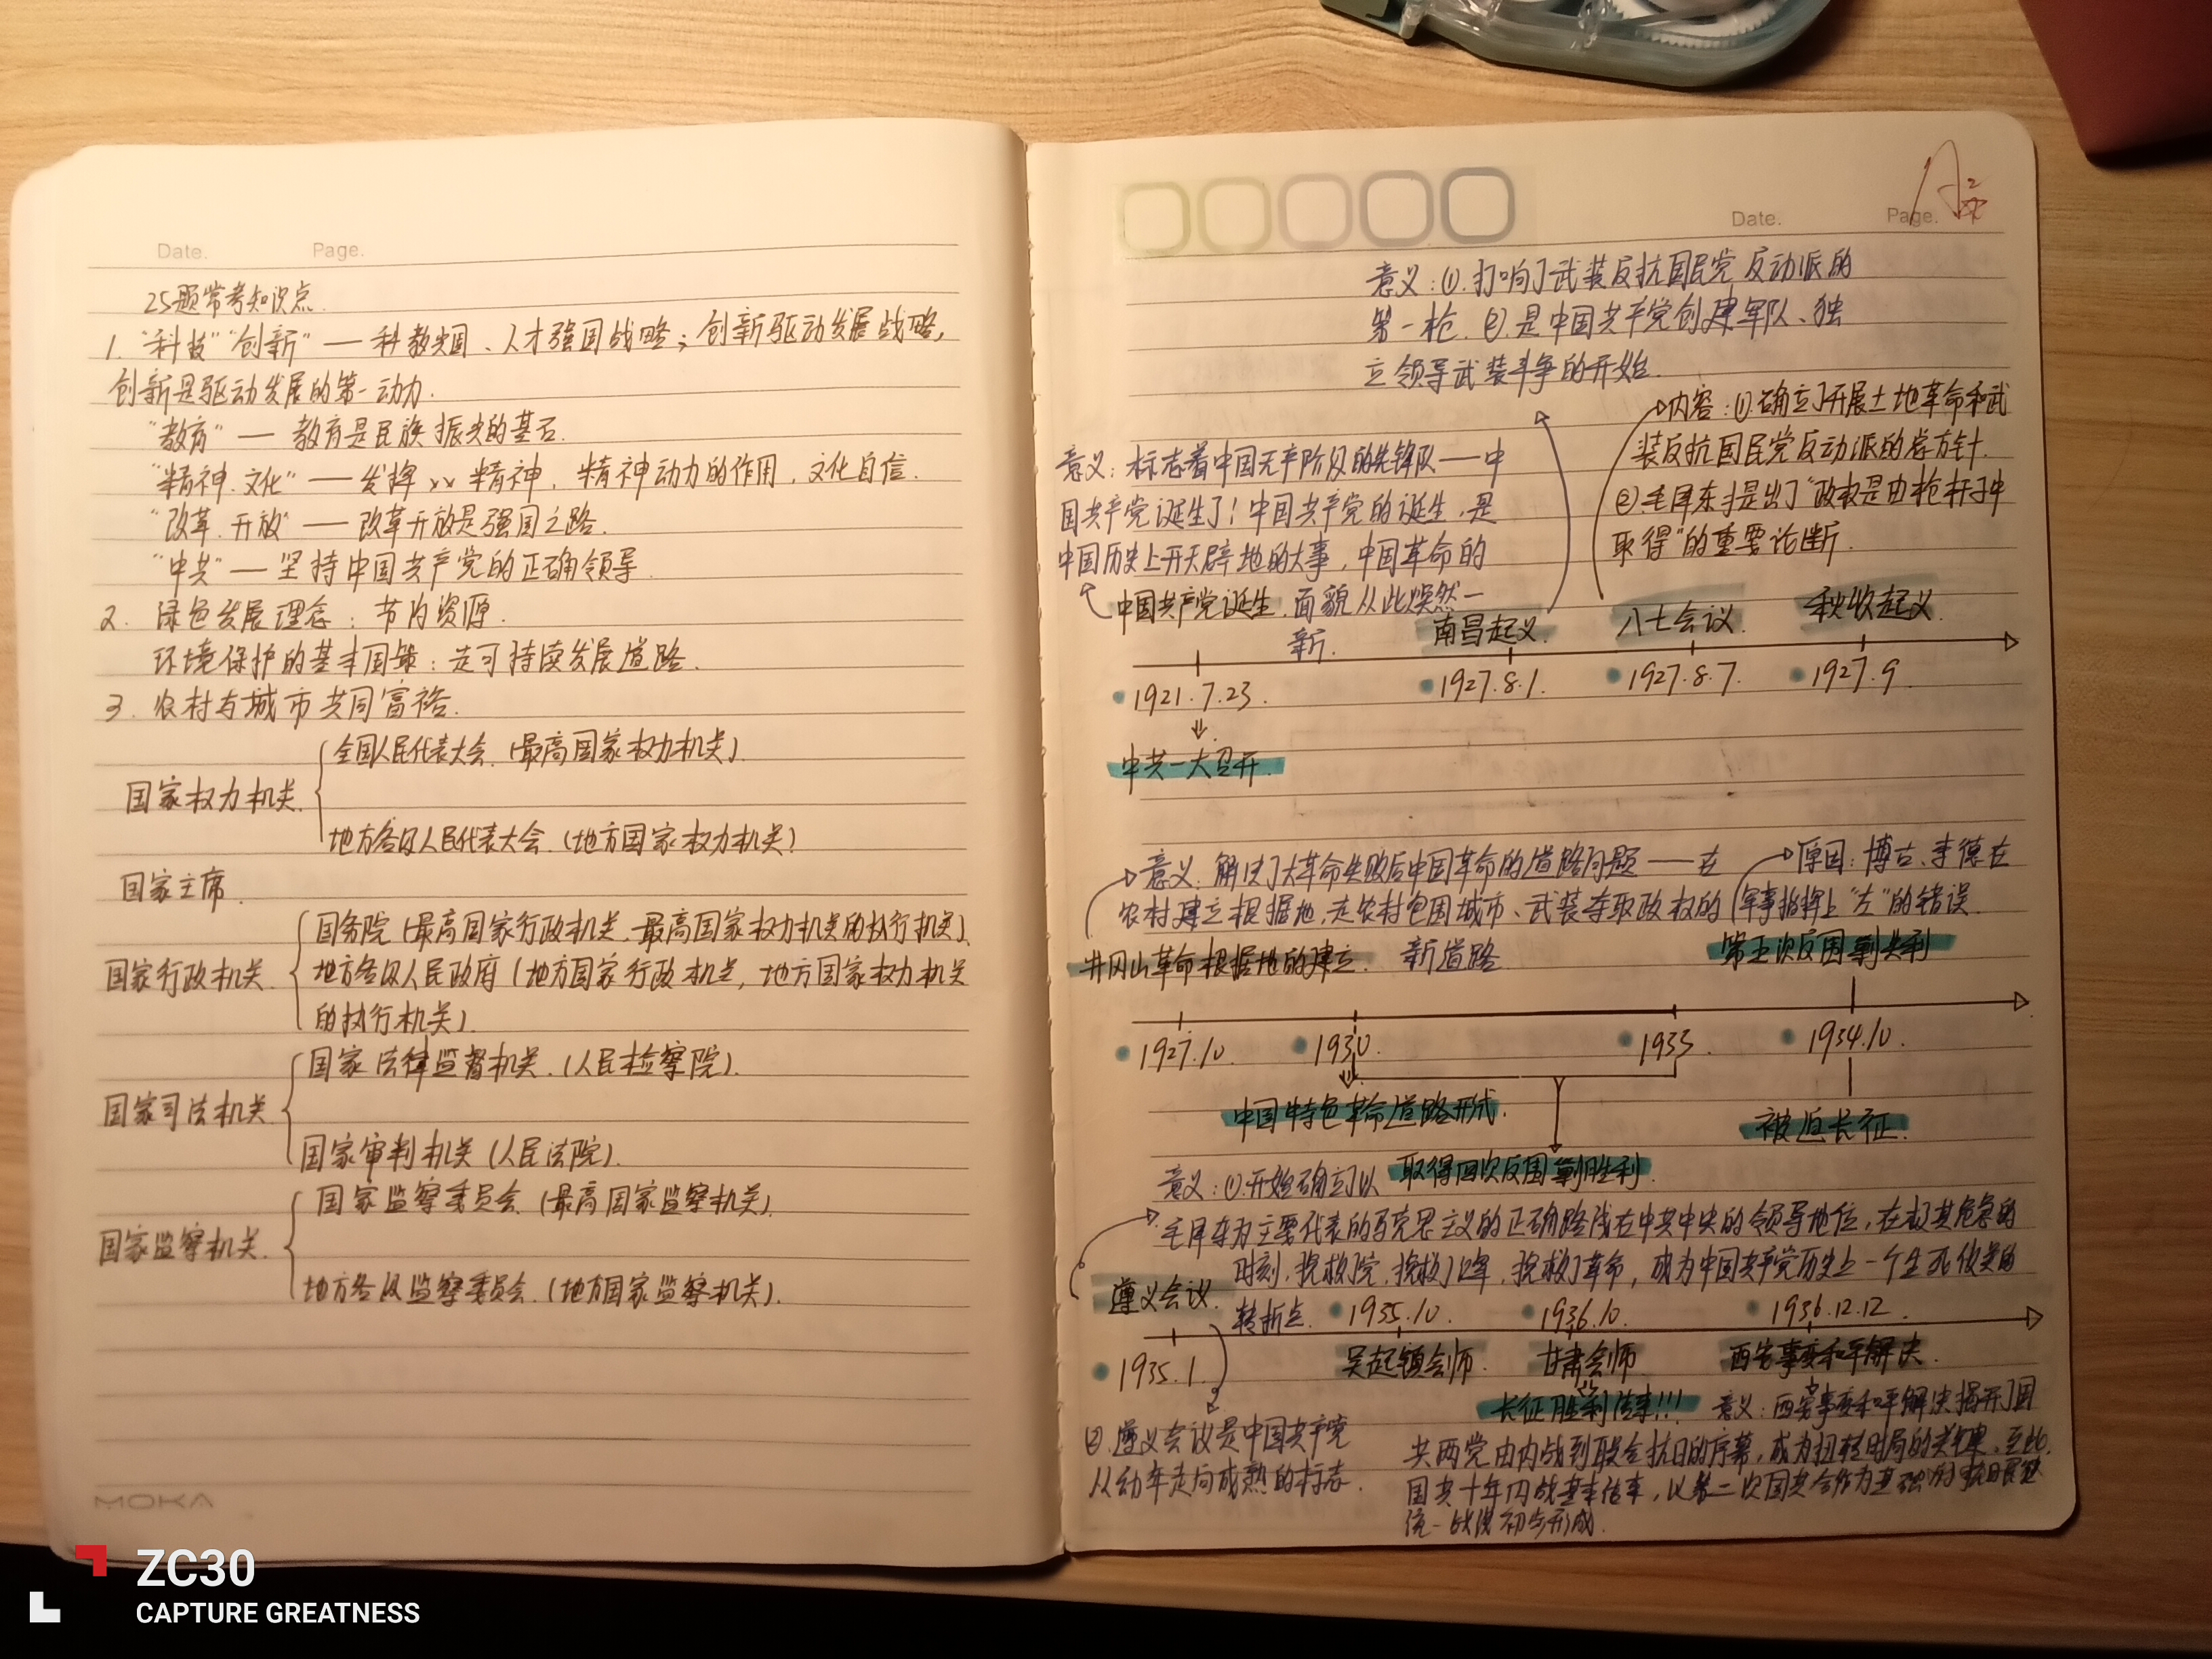 Date. Page.
25题常考知识点.
1. "科技""创新" — 科教兴国、人才强国战略；创新驱动发展战略，
创新是驱动发展的第一动力.
"教育" — 教育是民族振兴的基石.
"精神.文化" — 发挥 xx 精神，精神动力的作用，文化自信.
"改革.开放" — 改革开放是强国之路.
"中共" — 坚持中国共产党的正确领导.
2. 绿色发展理念：节约资源.
环境保护的基本国策：走可持续发展道路.
3. 农村与城市共同富裕.
全国人民代表大会.（最高国家权力机关）.
国家权力机关.
地方各级人民代表大会.（地方国家权力机关）
国家主席.
国务院（最高国家行政机关.最高国家权力机关的执行机关）.
国家行政机关. 地方各级人民政府（地方国家行政机关，地方国家权力机关
的执行机关）.
国家法律监督机关.（人民检察院）.
国家司法机关
国家审判机关（人民法院）.
国家监察委员会（最高国家监察机关）.
国家监察机关.
地方各级监察委员会.（地方国家监察机关）.
MOKA
Date. Page.
意义：①.打响了武装反抗国民党反动派的
第一枪.②.是中国共产党创建军队、独
立领导武装斗争的开始.
内容：①.确立了开展土地革命和武
装反抗国民党反动派的总方针.
②毛泽东提出了"政权是由枪杆子中
取得"的重要论断.
意义：标志着中国无产阶级的先锋队——中
国共产党诞生了！中国共产党的诞生，是
中国历史上开天辟地的大事，中国革命的
面貌从此焕然一
新.
中国共产党诞生. 南昌起义. 八七会议. 秋收起义.
1921.7.23. 1927.8.1. 1927.8.7. 1927.9.
中共一大召开.
意义：解决了大革命失败后中国革命的道路问题——在
农村建立根据地，走农村包围城市、武装夺取政权的
新道路
原因：博古、李德在
军事指挥上"左"的错误.
井冈山革命根据地的建立. 第五次反围剿失利
1927.10. 1930. 1933. 1934.10.
中国特色革命道路形成. 被迫长征.
取得四次反围剿胜利.
意义：①.开始确立了以
毛泽东为主要代表的马克思主义的正确路线在中共中央的领导地位，在极其危急的
时刻，挽救了党，挽救了红军，挽救了革命，成为中国共产党历史上一个生死攸关的
转折点.
遵义会议. 1935.10. 1936.10. 1936.12.12.
1935.1. 吴起镇会师. 甘肃会师. 西安事变和平解决.
长征胜利结束!!!
②.遵义会议是中国共产党
从幼年走向成熟的标志.
意义：西安事变和平解决揭开了国
共两党由内战到联合抗日的序幕，成为扭转时局的关键.至此，
国共十年内战基本结束，以第二次国共合作为基础的抗日民族
统一战线初步形成.
ZC30
CAPTURE GREATNESS